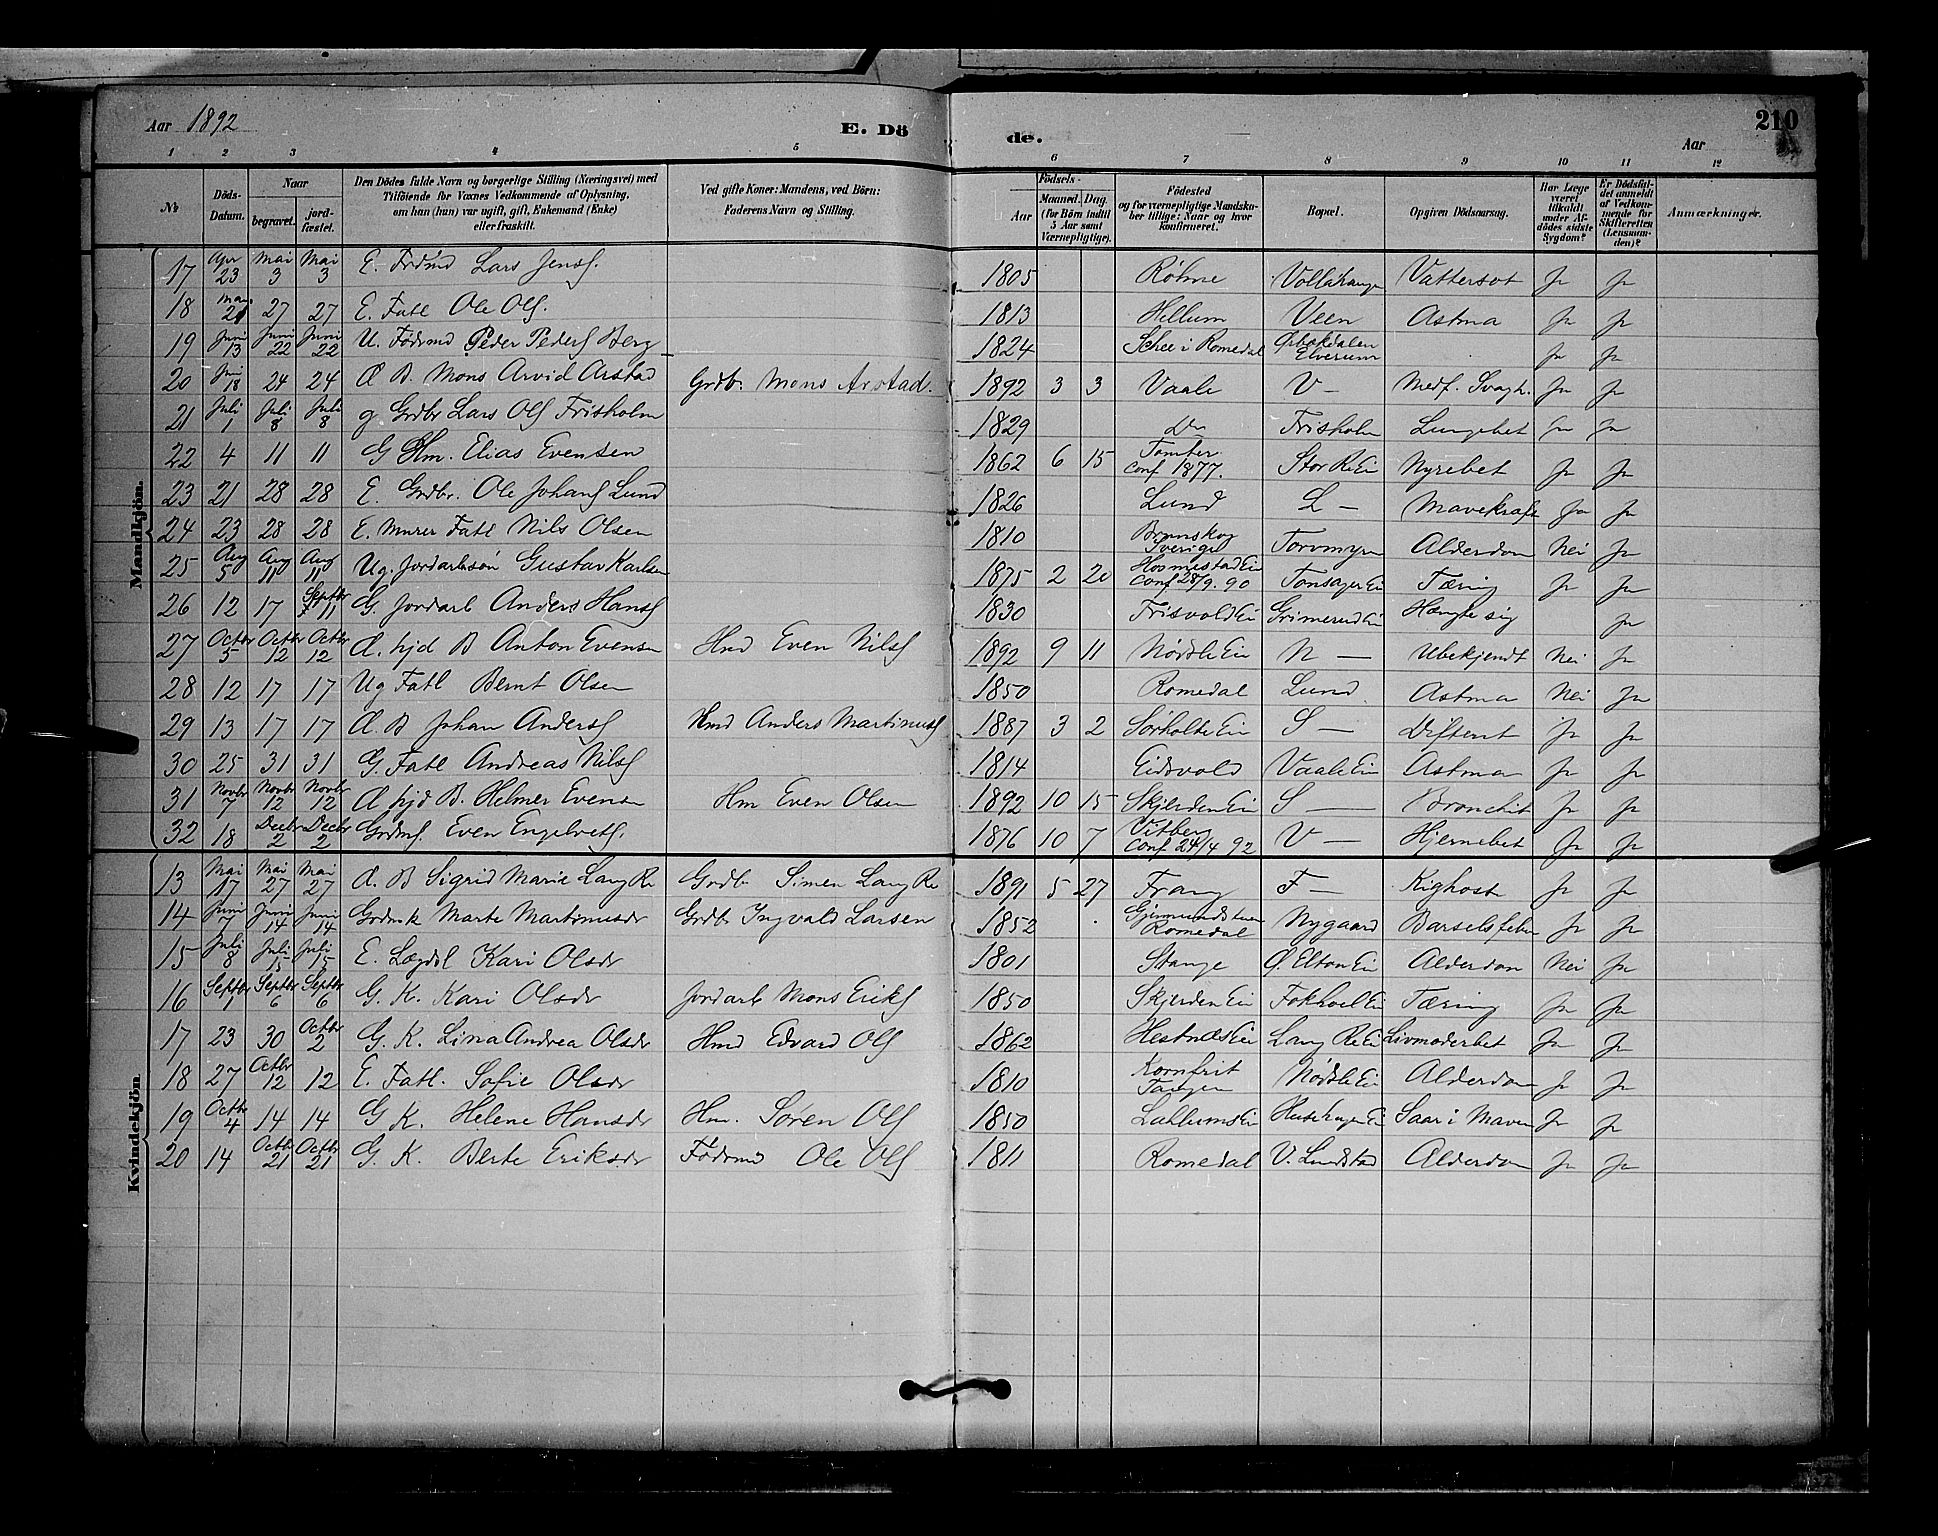 Aar 1892
E. Dö
de.
Aar
210
1 2 3 4 5 6 7 8 9 10 11 12
№
Döds-Datum.
Naar
begravet.
jord-fæstet.
Den Dödes fulde Navn og borgerlige Stilling (Næringsvei) med
Tilföiende for Voxnes Vedkommende af Oplysning,
om han (hun) var ugift, gift, Enkemand (Enke)
eller fraskilt.
Ved gifte Koner: Mandens, ved Börn:
Faderens Navn og Stilling.
Födsels-
Aar
Maaned. Dag.
(for Börn indtil
5 Aar samt
Værnepligtige).
Födested
og for værnepligtige Mandska-
ber tillige: Naar og hvor
konfirmeret.
Bopæl.
Opgiven Dödsaarsag.
Har Læge
været
tilkaldt
under Af-
dödes sidste
Sygdom?
Er Dödsfal-
det anmeldt
af Vedkom-
mende for
Skifteretten
(Lensman-
den)?
Anmærkninger.
Mandkjön.
17 Apr 23 Mai 3 Mai 3 E. Lars Jensf. 1805 Røhne Vattersot Ja Ja
18 Mai 27 27 E. Fatl Ole Olf. 1813 Hellum Veen Astma Ja Ja
19 Juni 13 Juni 22 Juni 22 U. Födsmd Peder Pedersf Berg 1824 Schee i Romedal Elverum Ja Ja
20 Jni 18 24 24 Æ B. Mons Arvid Arstad Grdb: Mons Arstad. 1892 3 3 Vaale V— Medf. Svagh. Ja Ja
21 Juli 1 Juli 8 Juli 8 g Grdbr Lars Olf Frisholm 1829 Do Frisholm Lungebet Ja Ja
22 4 11 11 G Hm. Elias Evensen 1862 6 15 Tomter conf 1877. Stor Re Ei Nyrebet Ja Ja
23 21 28 28 E. Grdbr. Ole Johansf Lund 1826 Lund L— Mavekraft Ja Ja
24 23 28 28 E. Murer Fatl Nils Olsen 1810 Brunskog Sverige Torvmyren Alderdom Nei Ja
25 Aug 5 Aug 11 Aug 11 Ug. Jordarbsøn Gustav Karlsen 1875 2 20 conf 28/9. 90 Tonsager Ei Tæring Ja Ja
26 12 17 Septbr 11 G. Jordarb Anders Hansf 1830 Frisvold Ei Grimerud Ei Hængte sig Ja
27 Octbr 5 Octbr 12 Octbr 12 Æ. hjd B Anton Evensen Hmd Even Nilsf 1892 9 11 Nødsle Ei N— Ubekjendt Nei Ja
28 12 17 17 Ug Fatl Bernt Olsen 1850 Romedal Lund Astma Nei Ja
29 13 17 17 Æ. B Johan Andersf Hmd Anders Martinusf 1887 3 2 Sørholte Ei S— Difterit Ja Ja
30 25 31 31 G. Fatl Andreas Nilsf 1814 Eidsvold Vaale Ei Astma Ja Ja
31 Novbr 7 Novbr 12 Novbr 12 Æ hjd B. Helmer Evensen Hm Even Olsen 1892 10 15 Skjerden Ei S— Bronchit Ja Ja
32 18 Decbr 2 Decbr 2 Grdmsf. Even Engelretsf. 1876 10 7 Vitberg conf 24/4 92 V— Hjernebet Ja Ja
Kvindekjön.
13 Mai 17 Mai 27 Mai 27 Æ. B Sigrid Marie Lang Re Grdb Simen Lang Re 1891 5 27 Frang F— Kighoste Ja Ja
14 Juni 7 Juni 14 Juni 14 Grdmk Marte Martinusdr Grdbr Ingvald Larsen 1852 Romedal Nygaard Barselsfeber Ja Ja
15 Juli 8 Juli 15 Juli 15 E. Lægdsl Kari Olsdr 1801 Stange Ø. Elton Ei Alderdom Nei Ja
16 Septbr 1 Septbr 6 Septbr 6 G. K. Kari Olsdr Jordarb Mons Eriksf 1850 Skjerden Ei Fokhoel Ei Tæring Ja Ja
17 23 30 Octbr 2 G. K. Lina Andrea Olsdr Hmd Edvard Olf 1862 Hestnæs Ei Lang Re Ei Livmoderbet Ja Ja
18 27 Octbr 12 12 E. Fatl. Sofie Olsdr 1810 Kornfrit Tangen Nødsle Ei Alderdom Ja Ja
19 Octbr 4 14 14 G K. Helene Hansdr Hm. Søren Olf 1850 Lahlums Ei Saar i Maven Ja Ja
20 14 Octbr 21 Octbr 21 G. K. Berte Eriksdr Födsmd Ole Olf 1811 Romedal V. Lundstad Alderdom Ja Ja